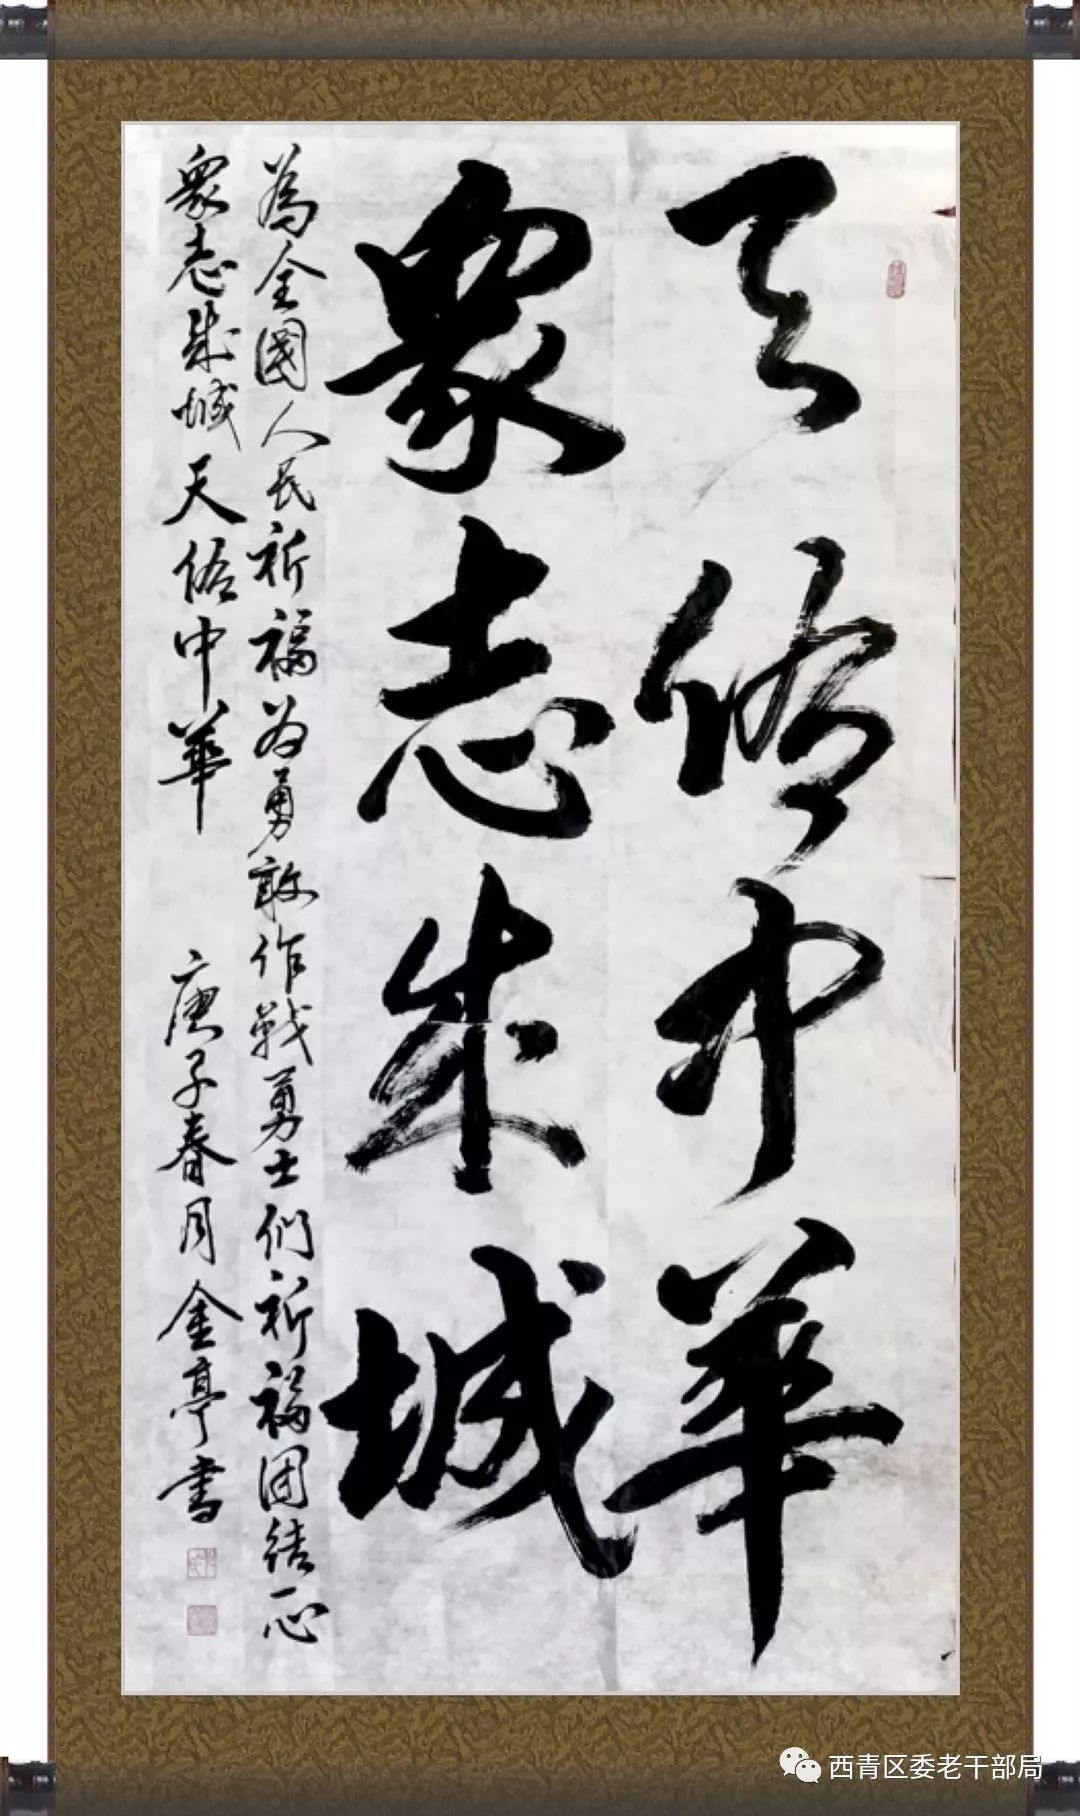 天佑中華
衆志成城
為全國人民祈福为勇敢作戰勇士们祈福团结一心
衆志成城天佑中華 庚子春月金亭書
西青区委老干部局